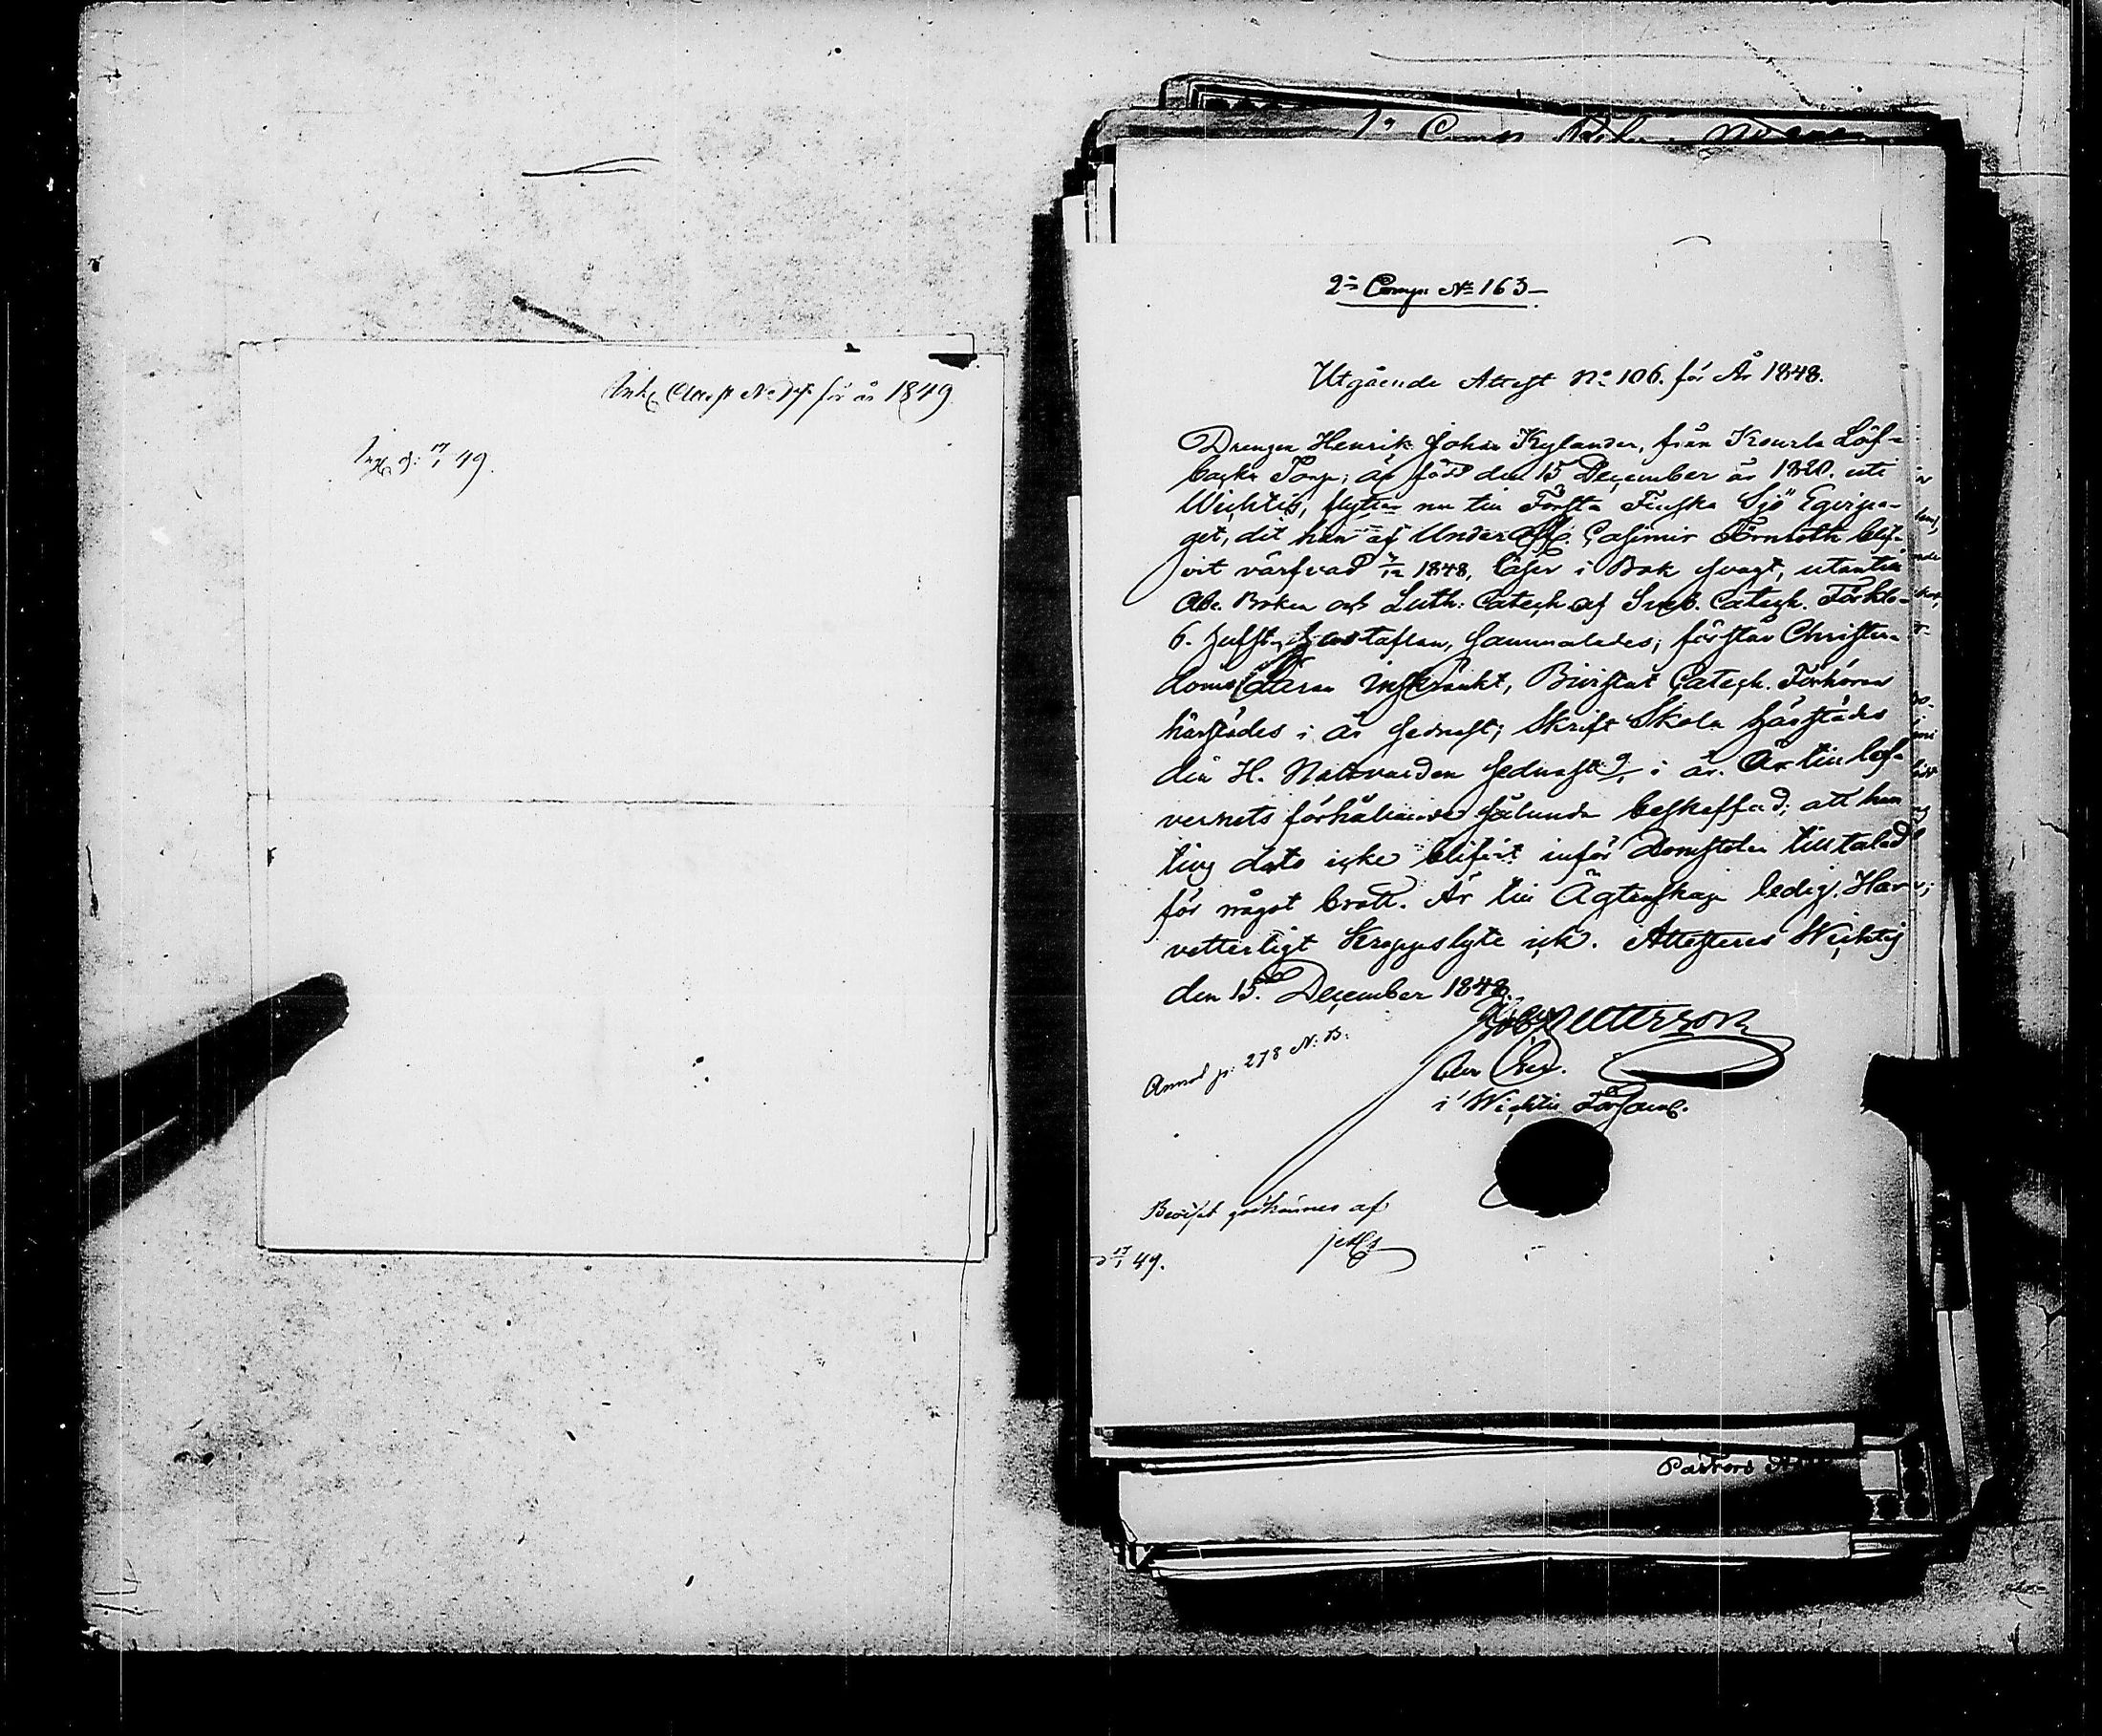 Ink. Attest No 17 för år 1849
Ing. d: 17/1 49.
2:a Comp: No 163
Utgående Attest No 106. för År 1848.
Drengen Henrik Johan Kylander, från Kourla Löf-
backa Torp; är född den 15 December år 1820. uti
Wichtis, flyttar nu till Första Finska Sjö Eqvipa-
get, dit han af Under Off. Casimir Törnroth blif-
vit värfvad 7/12 1848, läser i Bok svagt, utantill
Abc Boken och Luth: Catech. af Sveb. Catech. Förkla-
6. Hufst. Hustaflan, sammaledes; förstår Christen-
doms Läran inskränkt, Bivistat Catech. Förhören
härstädes i år sednast; Skrift Skola härstädes
den H. Nattvarden sednast i år. Är till lef-
vernets förhållande sålunda beskaffad; att han
till dato icke blifvit inför Domstolen tilltalad
för något brott. Är till Ägtenskap ledig. Har
vetterligt Kroppslyte ick. Attesteras Wichtis
den 15. December 1848.
Petterson
i Wichtis Församl.
Annot p: 278 N: B:
Beviset godkännes af
17/1 49.
Pastors